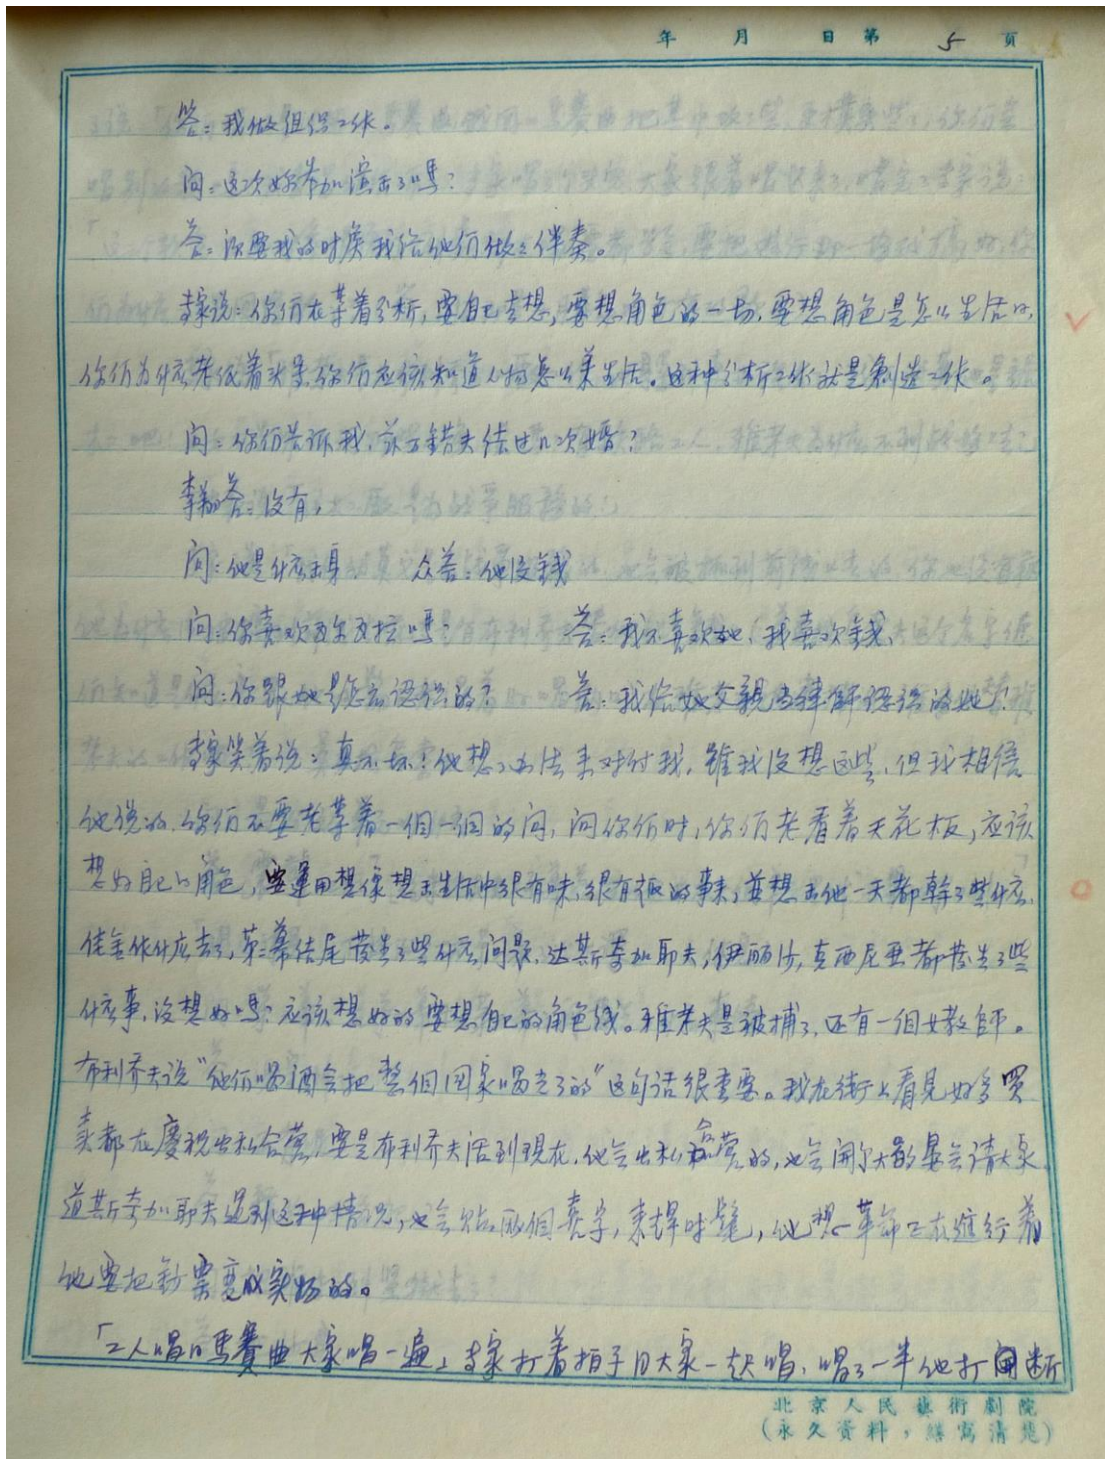 年 月 日第 5 頁
答：我做组织工作。
问：这次你参加演出了嗎？
答：须要我的时候我给他们做々伴奏。
專家说：你们在等着分析，要自己去想，要想角色的一切，要想角色是怎么生活的，
你们为什应老低着头呈，你们应该知道人物怎么来生活。这种分析工作就是創造工作。
问：你们告诉我，兹方錯夫结过几次婚？
李翔答：没有，
问：他是什应出身， 众答：他没錢
问：你喜欢瓦尔瓦拉嗎？ 答：我不喜欢她，我喜欢錢，
问：你跟她是怎应認识的？ 答：我给她父親当律師認识的她！
專家笑着说：真不坏！他想了办法来对付我，雖我没想这些，但我相信
他说的，你们不要老等着一個一個的问，问你们时，你们老看着天花板，应该
想好自己的角色，要運用想像想出生活中很有味，很有趣的事来，並想出他一天都幹了些什应，
作什应去了，第二幕结尾發生了些什应问题，达斯奇加耶夫，伊丽沙，克西尼亚都發生了些
什应事，没想好嗎？应该想好的要想自己的角色线。雅考夫是被捕了，还有一個女教師。
布利乔夫说“他们喝酒会把整個国家喝光了的”这句话很重要。我在街上看見好多買
卖都在慶祝公私合营，要是布利乔夫活到現在，他会公私合营的，也会開个大的宴会請大家，
道斯奇加耶夫遇到这种情况，也会贴两個喜字，他想革命正在進行着
他要把鈔票变成实物的。
「工人唱的馬賽曲大家唱一遍」專家打着拍子同大家一起唱，唱了一半他打断
北京人民藝術劇院
（永久資料，繕寫清楚）